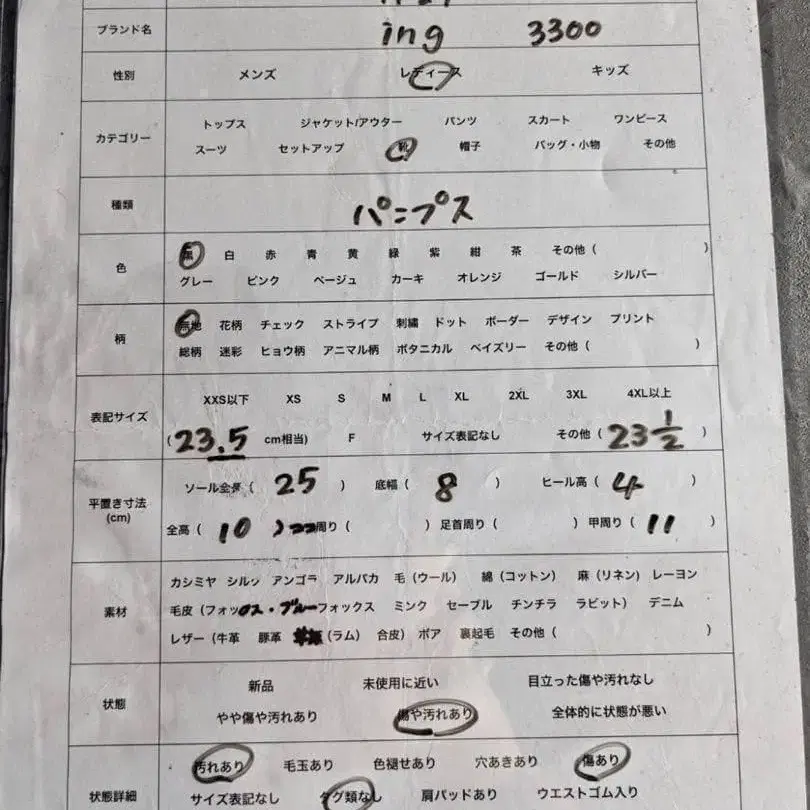 ブランド名 ing 3300
性別 メンズ レディース キッズ
カテゴリー トップス ジャケット/アウター パンツ スカート ワンピース
スーツ セットアップ 靴 帽子 バッグ・小物 その他
種類 パンプス
色 黒 白 赤 青 黄 緑 紫 紺 茶 その他( )
グレー ピンク ベージュ カーキ オレンジ ゴールド シルバー
柄 無地 花柄 チェック ストライプ 刺繍 ドット ボーダー デザイン プリント
総柄 迷彩 ヒョウ柄 アニマル柄 ボタニカル ペイズリー その他( )
XXS以下 XS S M L XL 2XL 3XL 4XL以上
表記サイズ
(23.5 cm相当) F サイズ表記なし その他(23 1/2)
平置き寸法(cm) ソール全長(25) 底幅(8) ヒール高(4)
全高(10) 周り( ) 足首周り( ) 甲周り(11)
素材 カシミヤ シルク アンゴラ アルパカ 毛(ウール) 綿(コットン) 麻(リネン) レーヨン
毛皮(フォックス・ブルーフォックス ミンク セーブル チンチラ ラビット) デニム
レザー(牛革 豚革 (ラム) 合皮) ボア 裏起毛 その他( )
状態 新品 未使用に近い 目立った傷や汚れなし
やや傷や汚れあり 傷や汚れあり 全体的に状態が悪い
状態詳細 汚れあり 毛玉あり 色褪せあり 穴あきあり 傷あり
サイズ表記なし タグ類なし 肩パッドあり ウエストゴム入り